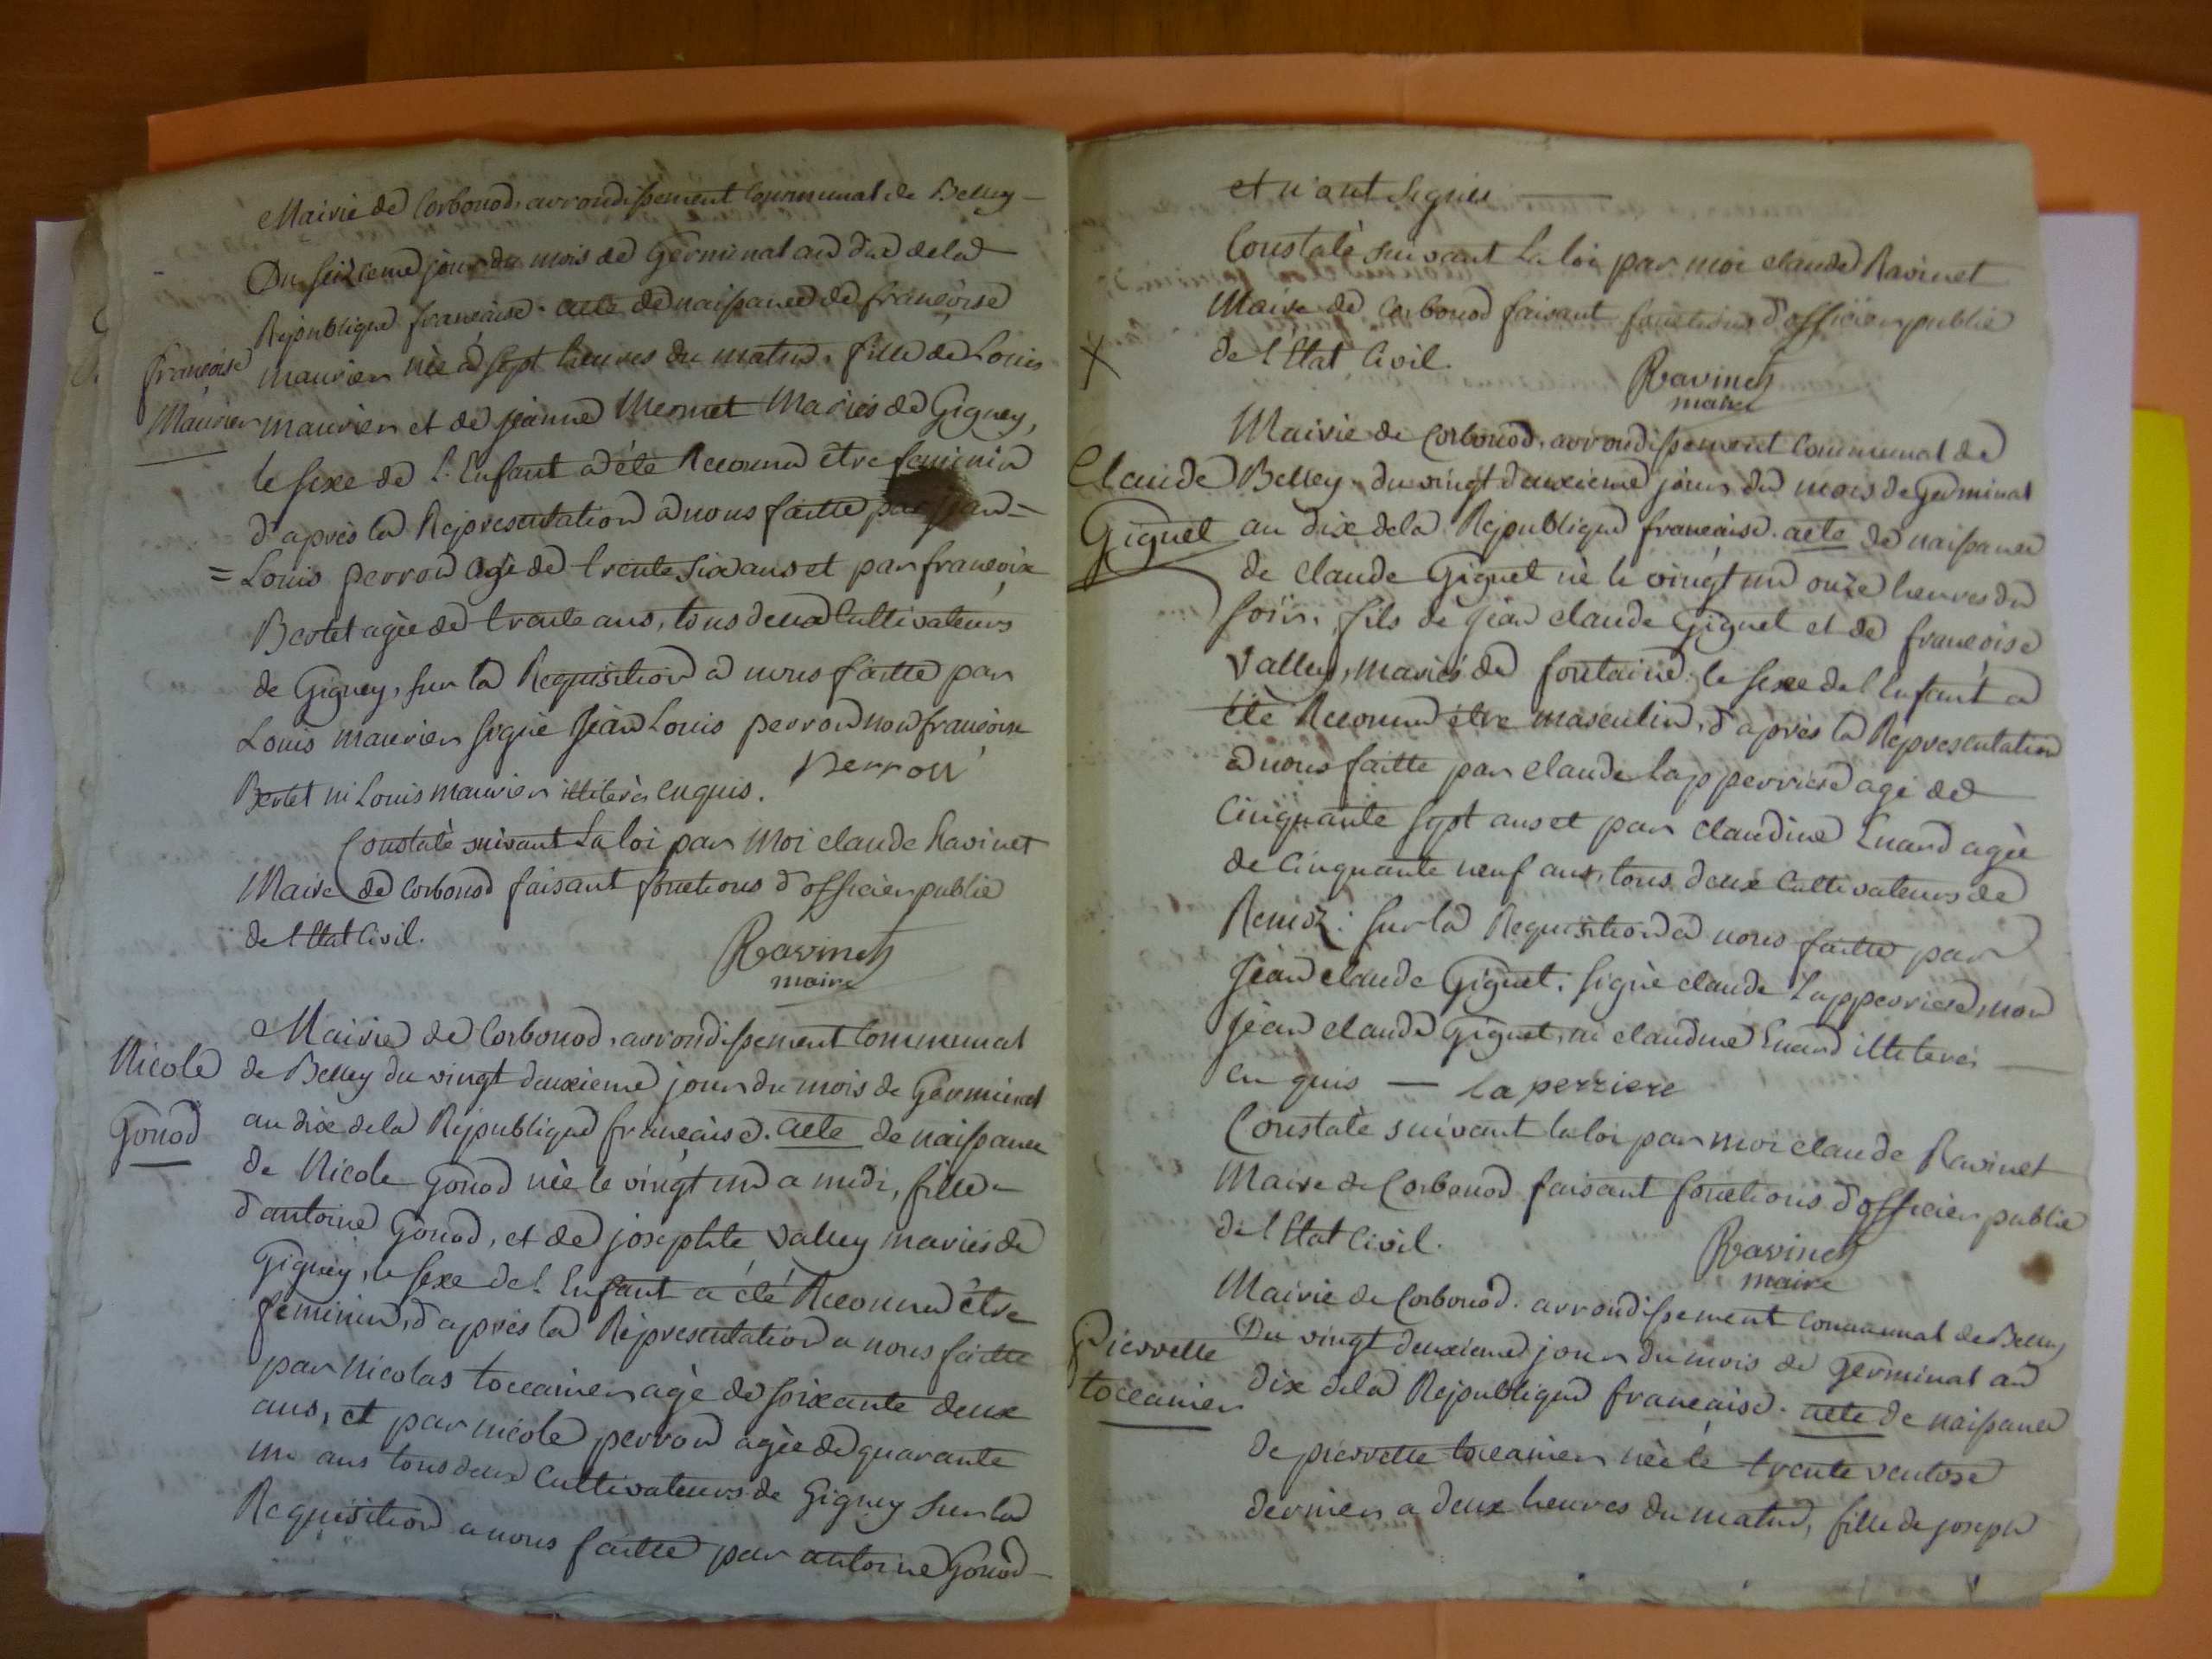 Mairie de Corbonod, arrondissement Communal de Belley -
Du seizieme jour du mois de Germinal an dix de la
Republique française. acte de naissance de françoise
françoise
Maurier
maurier née à sept heures du matin, fille de Louis
maurier et de jeanne Mermet Mariés de Gigney,
le sexe de l'Enfant a été Reconnu être feminin
d'après la Representation a nous faitte par jean =
= Louis perron agé de trente six ans et par françoise
Bertet agée de trente ans, tous deux Cultivateurs
de Gigney, sur la Requisition a nous faitte par
Louis maurier signé Jean Louis perron non françoise
Bertet ni Louis maurier illiterés enquis. Perron
Constaté suivant La loi par Moi claude Ravinet
Maire de Corbonod faisant fonctions d'officier public
de l'Etat Civil.
Ravinet
maire
Mairie de Corbonod, arrondissement Communal
Nicole
Gonod
de Belley du vingt deuxieme jour du mois de Germinal
an dix de la Republique française. acte de naissance
de Nicole gonod née le vingt un a midi, fille
d'antoine Gonod, et de josephte Valley mariés de
Gigney, le sexe de l'Enfant a été Reconnu être
feminin, d'après la Representation a nous faitte
par nicolas toccanier agé de soixante deux
ans, et par nicole perron agée de quarante
un ans tous deux Cultivateurs de Gigney sur la
Requisition a nous faitte par antoine Gonod -
et n'ont signés
Constaté suivant La loi par moi claude Ravinet
Maire de Corbonod faisant fonctions d'officier public
X
de l'Etat Civil.
Ravinet
maire
Mairie de Corbonod, arrondissement Communal de
Claude
Giguet
Belley. du vingt deuxieme jour du mois de Germinal
an dix de la Republique française. acte de naissance
de claude Giguet né le vingt un onze heures du
soir, fils de jean claude Giguet et de françoise
Valley, mariés de fontaine. le sexe de l'Enfant a
été Reconnu être masculin, d'après la Representation
a nous faitte par claude Lapperriere agé de
Cinquante sept ans et par claudine Enard agée
de Cinquante neuf ans, tous deux Cultivateurs de
sur la Requisition a nous faitte par
Jean claude Giguet; signé claude Lapperriere, non
Jean claude Giguet, ni claudine Enard illiterés
enquis — la perriere
Constaté suivant la loi par moi claude Ravinet
Maire de Corbonod faisant fonctions d'officier public
de l'Etat Civil.
Ravinet
maire
Mairie de Corbonod. arrondissement Communal de Belley
Pierrette
toccanier
Du vingt deuxieme jour du mois de Germinal an
dix de la Republique française. acte de naissance
de pierrette toccanier née le trente ventose
dernier a deux heures du matin, fille de joseph